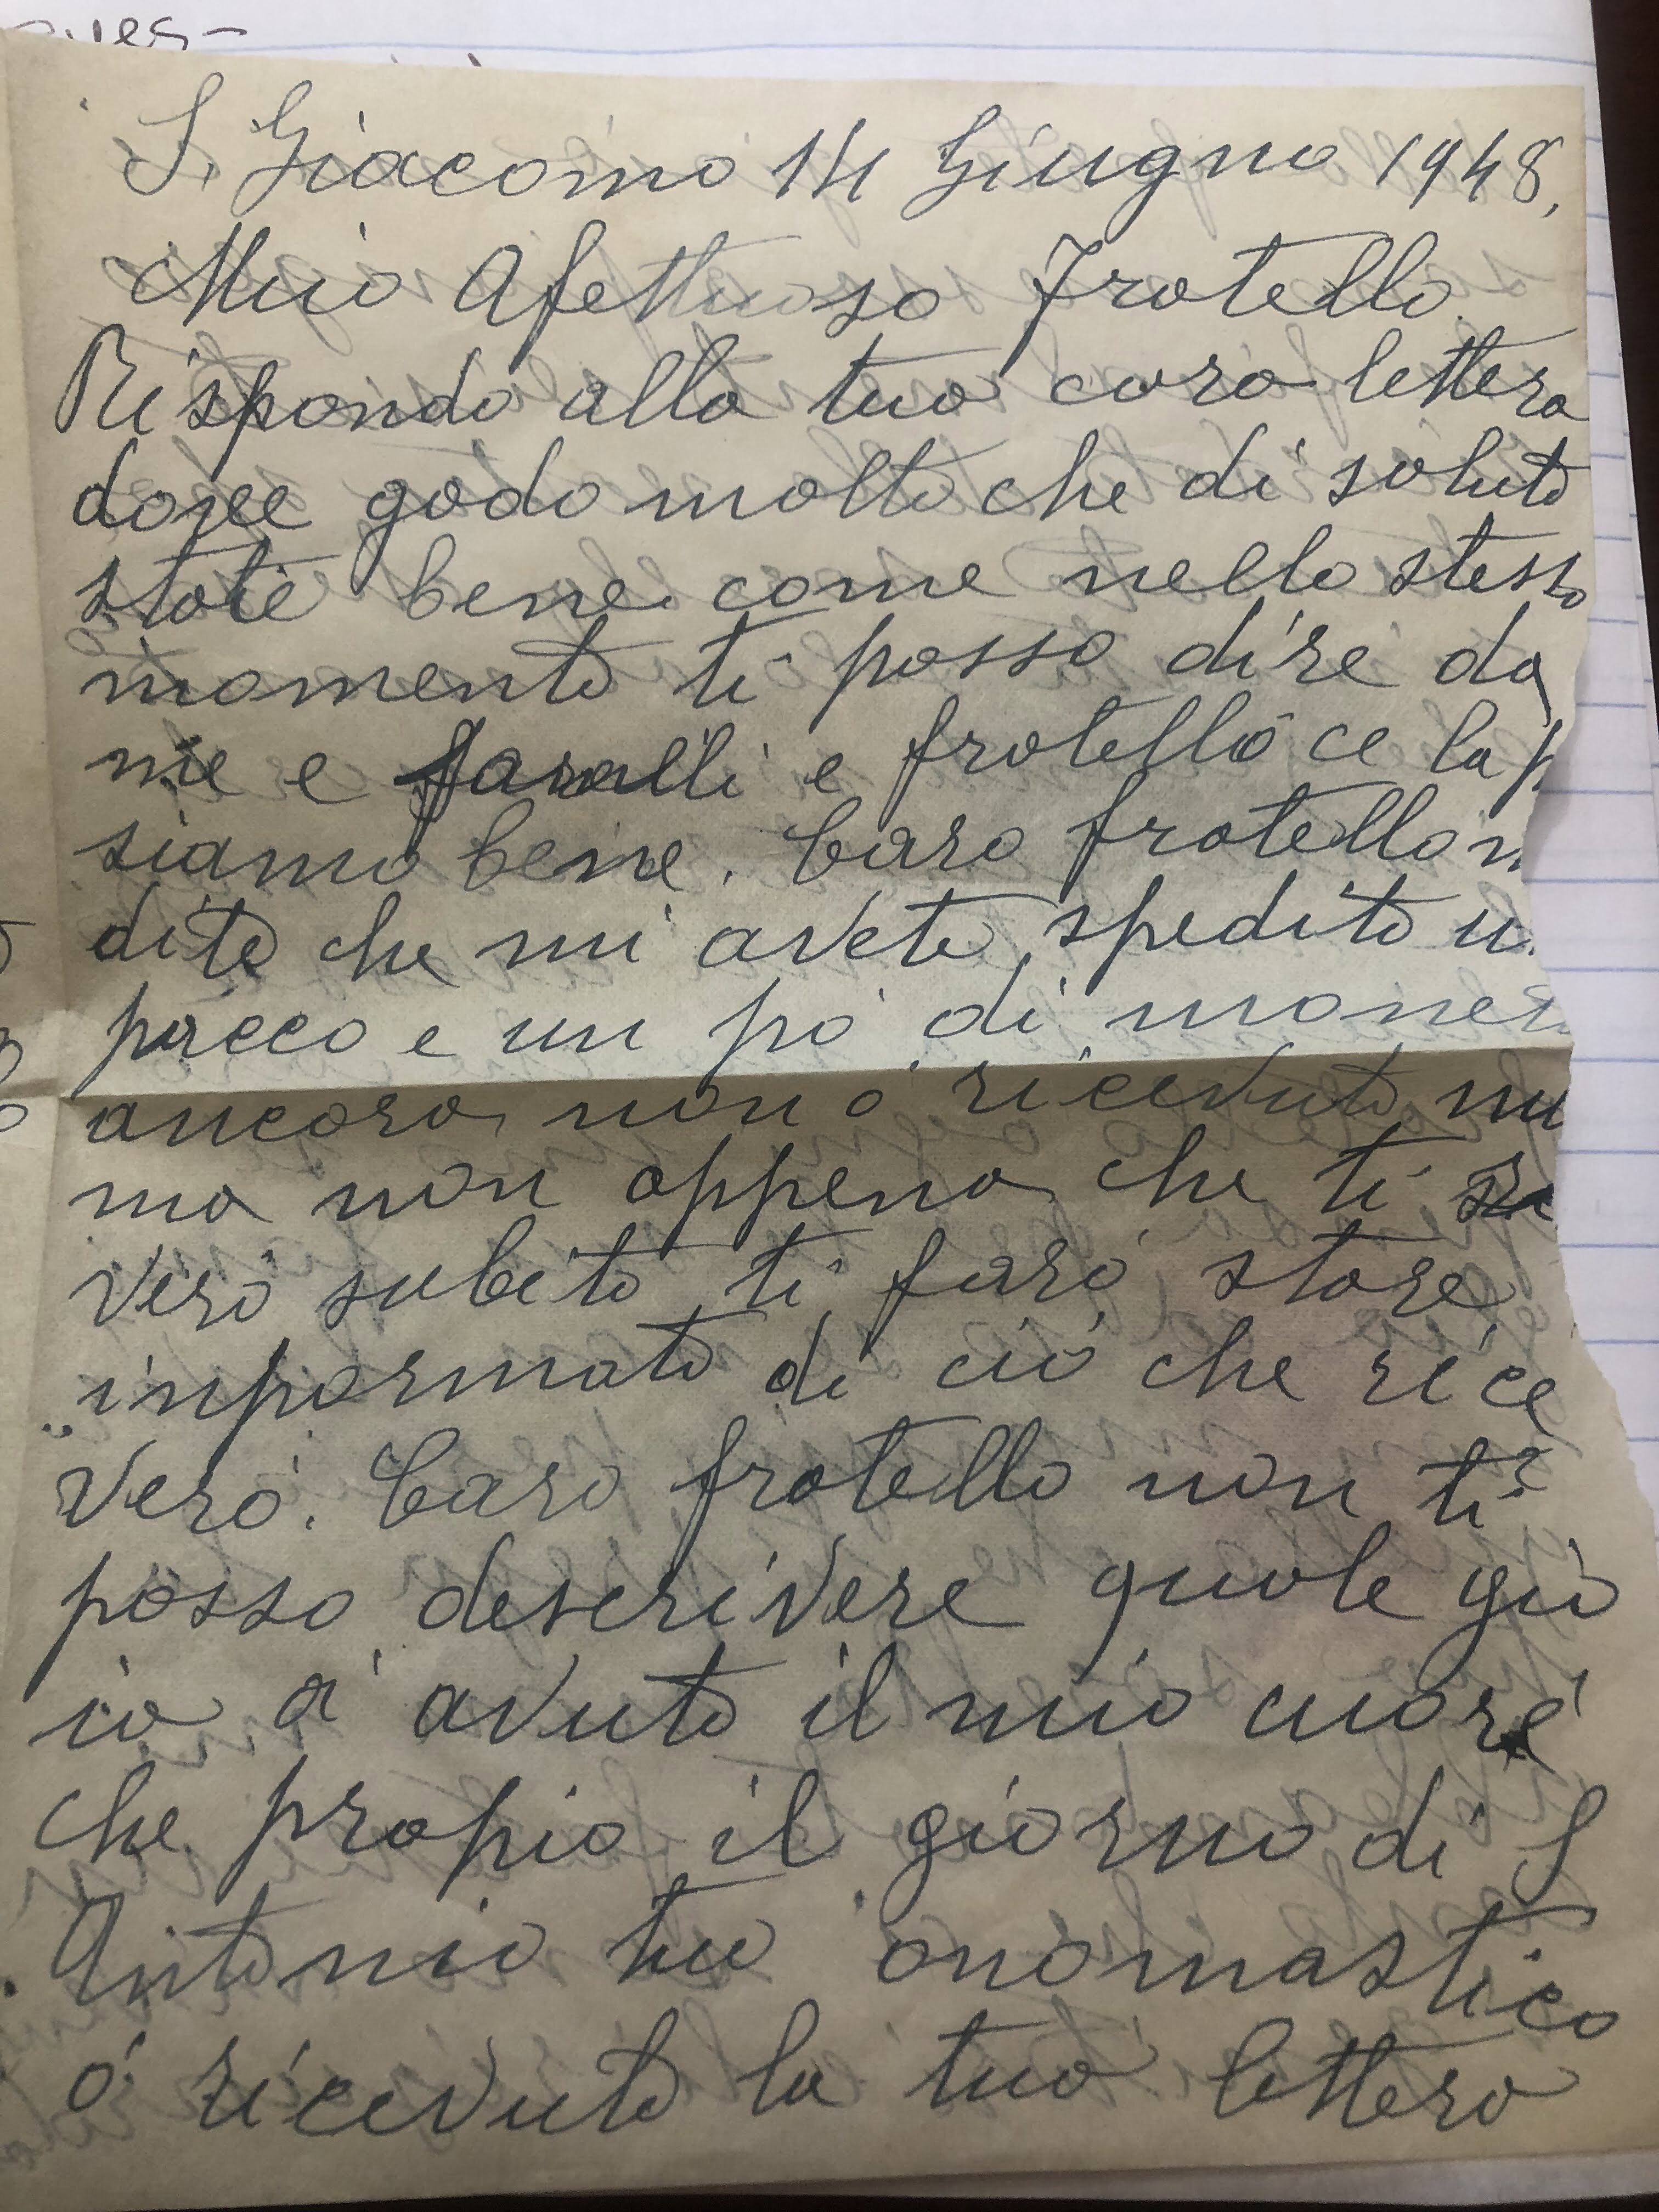 S. Giacomo 14 Giugno 1948,
Mio Afettuoso Fratello.
Rispondo alla tua cara lettera
dove godo molto che di salute
state bene come nello stesso
momento ti posso dire da
me e e fratello ce la p
siamo bene. Caro fratello m
dite che mi avete spedito u
pacco e un pò di monet
ancora non ò ricevuto nu
ma non appena che ti
verò subito ti farò stare
informato di ciò che rice
verò. Caro fratello non ti
posso descrivere quale gio
ia à avuto il mio cuore
che propio il giorno di S
Antonio tuo onomastico
ò ricevuto la tua lettera